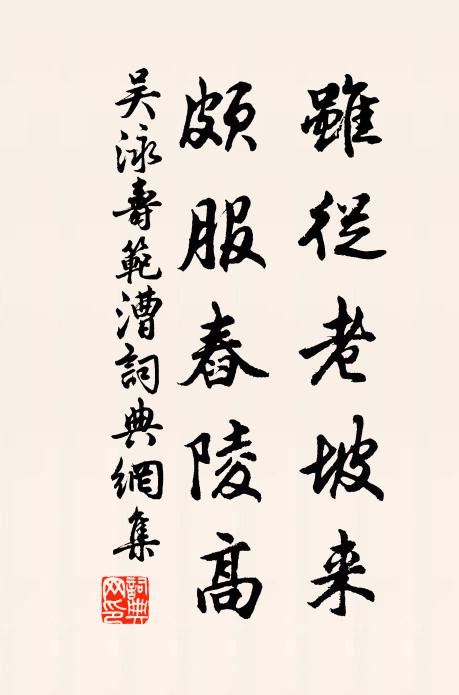 雖從老坡来
頗服舂陵高
吴泳壽範漕詞典網集
詞典网印